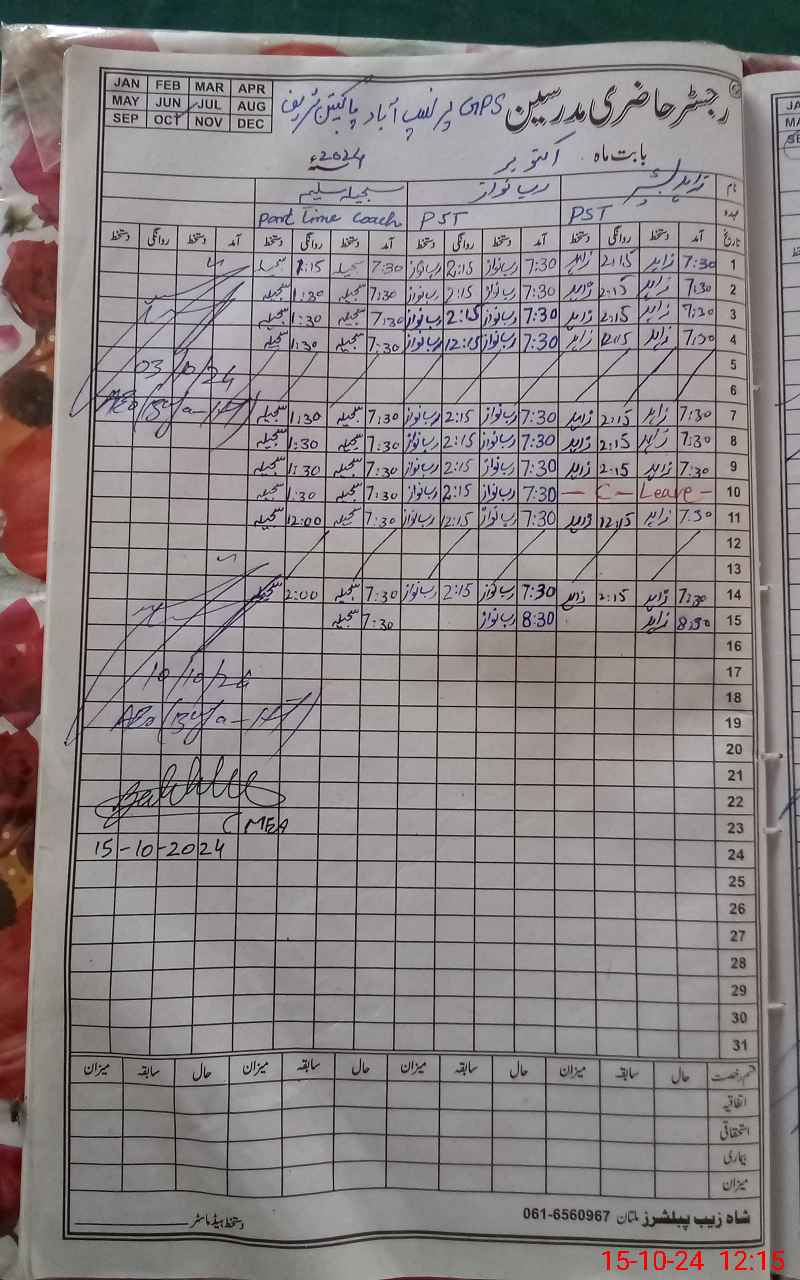 JAN FEB MAR APR
MAY JUN JUL AUG
SEP OCT NOV DEC
رجسٹر حاضری مدرسین GPS پرنسپ آباد پاکپتن شریف
بابت ماہ اکتوبر 2024ء
نام زاہد بشیر رب نواز سجیلہ سلیم
عہدہ PST PST Part Time Coach
تاریخ آمد دستخط روانگی دستخط آمد دستخط روانگی دستخط آمد دستخط روانگی دستخط آمد دستخط روانگی دستخط
1 7:30 زاہد 2:15 زاہد 7:30 رب نواز 2:15 رب نواز 7:30 سجیلہ 1:15 سجیلہ
2 7:30 زاہد 2:15 زاہد 7:30 رب نواز 2:15 رب نواز 7:30 سجیلہ 1:30 سجیلہ
3 7:30 زاہد 2:15 زاہد 7:30 رب نواز 2:15 رب نواز 7:30 سجیلہ 1:30 سجیلہ
4 7:30 زاہد 12:15 زاہد 7:30 رب نواز 12:15 رب نواز 7:30 سجیلہ 1:30 سجیلہ
5
03/10/24
6
AEO
7 7:30 زاہد 2:15 زاہد 7:30 رب نواز 2:15 رب نواز 7:30 سجیلہ 1:30 سجیلہ
8 7:30 زاہد 2:15 زاہد 7:30 رب نواز 2:15 رب نواز 7:30 سجیلہ 1:30 سجیلہ
9 7:30 زاہد 2:15 زاہد 7:30 رب نواز 2:15 رب نواز 7:30 سجیلہ 1:30 سجیلہ
10 — C — Leave — 7:30 رب نواز 2:15 رب نواز 7:30 سجیلہ 1:30 سجیلہ
11 7:30 زاہد 12:15 زاہد 7:30 رب نواز 12:15 رب نواز 7:30 سجیلہ 12:00 سجیلہ
12
13
14 7:30 زاہد 2:15 زاہد 7:30 رب نواز 2:15 رب نواز 7:30 سجیلہ 2:00 سجیلہ
15 8:30 زاہد 8:30 رب نواز 7:30 سجیلہ
16
17
10/10/24
18
19
AEO
20
21
22
23
MEA
24
15-10-2024
25
26
27
28
29
30
31
قسم رخصت حال سابقہ میزان حال سابقہ میزان حال سابقہ میزان حال سابقہ میزان
اتفاقیہ
استحقاقی
بیماری
میزان
شاہ زیب پبلشرز ملتان 061-6560967
دستخط ہیڈ ماسٹر
15-10-24 12:15